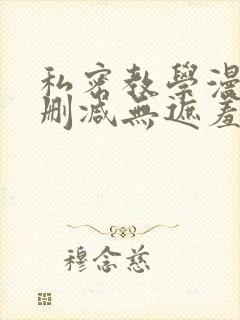 私密教學漫
删减無遮羞
穆念慈